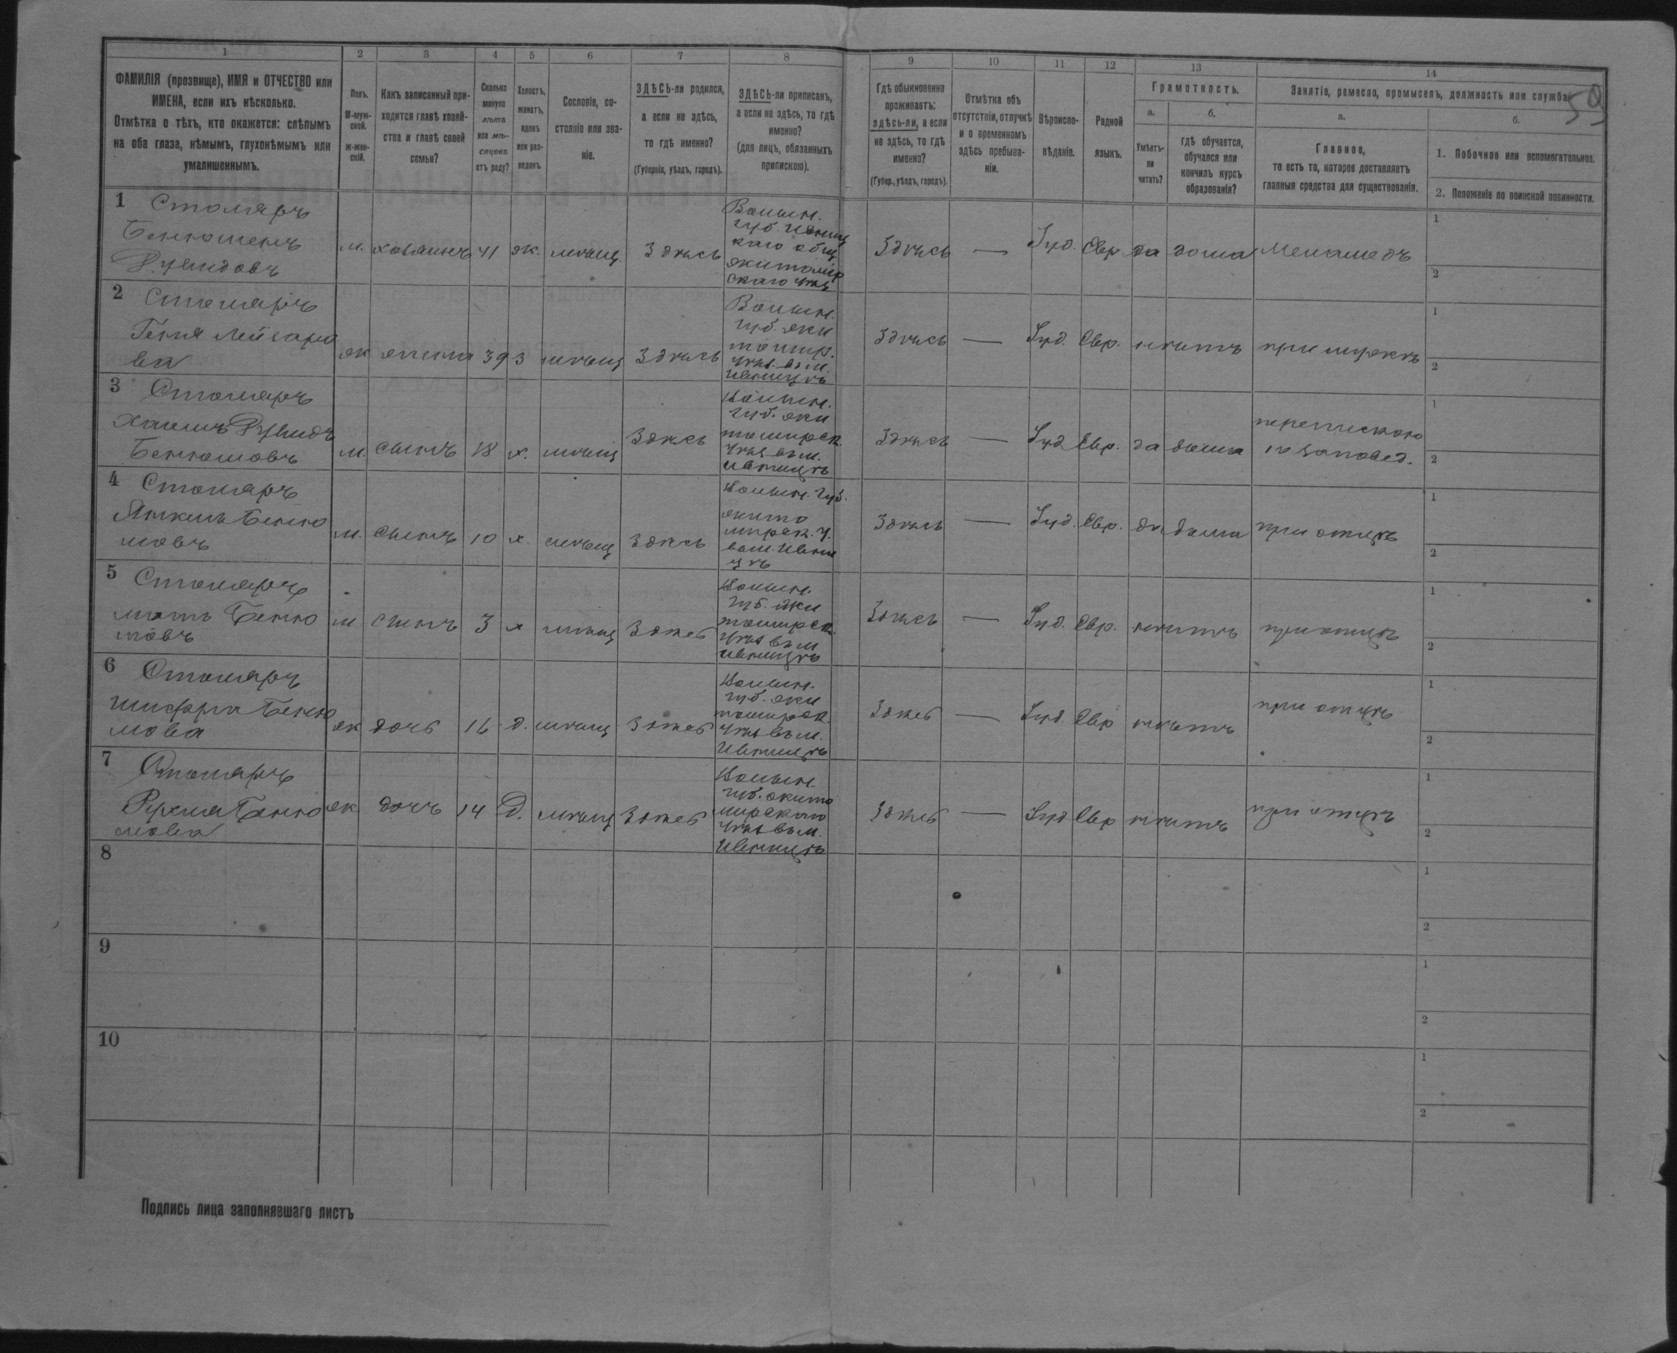 1 2 3 4 5 6 7 8 9 10 11 12 13 14
59
ФАМИЛІЯ (прозвище), ИМЯ и ОТЧЕСТВО или
ИМЕНА, если ихъ нѣсколько.
Отмѣтка о тѣхъ, кто окажется: слѣпымъ
на оба глаза, нѣмымъ, глухонѣмымъ или
умалишеннымъ.
Полъ.
М-муж-
ской.
Ж-жен-
скій.
Какъ записанный при-
ходится главѣ хозяй-
ства и главѣ своей
семьи?
Сколько
минуло
лѣтъ
или мѣ-
сяцевъ
отъ роду?
Холостъ,
женатъ,
вдовъ
или раз-
веденъ.
Сословіе, со-
стояніе или зва-
ніе.
ЗДѢСЬ-ли родился,
а если не здѣсь,
то гдѣ именно?
(Губернія, уѣздъ, городъ).
ЗДѢСЬ-ли приписанъ,
а если не здѣсь, то гдѣ
именно?
(для лицъ, обязанныхъ
припискою).
Гдѣ обыкновенно
проживаетъ:
здѣсь-ли, а если
не здѣсь, то гдѣ
именно?
(Губер., уѣздъ, городъ).
Отмѣтка объ
отсутствіи, отлучкѣ
и о временномъ
здѣсь пребыва-
ніи.
Вѣроиспо-
вѣданіе.
Родной
языкъ.
Грамотность.
а.
Умѣетъ-
ли
читать?
б.
гдѣ обучается,
обучался или
кончилъ курсъ
образованія?
Занятіе, ремесло, промыселъ, должность или служба.
а.
Главное,
то есть то, которое доставляетъ
главныя средства для существованія.
б.
1. Побочное или вспомогательное.
2. Положеніе по воинской повинности.
1 Столяръ
м. хозяинъ 41 ж. мѣщ. Здѣсь
Здѣсь — Іуд. Евр да дома Меламедъ
1
2
2 Столяръ
Геня Лейзаро
ва
ж жена 39 з мѣщ Здѣсь
Волын.
губ. жи
томир.
Здѣсь — Іуд. Евр. нѣтъ при мужѣ
1
2
3 Столяръ
м. сынъ 18 х. мѣщ Здѣсь
Волын.
губ. жи
томирск
Здѣсь — Іуд Евр. да дома
1
2
4 Столяръ
м. сынъ 10 х. мѣщ Здѣсь
Волын. губ.
жито
мирск. у.
Здѣсь — Іуд. Евр. да дома при отцѣ
1
2
5 Столяръ
м сынъ 3 х мѣщ Здѣсь
Волын.
губ. жи
томирск.
Здѣсь — Іуд. Евр. нѣтъ при отцѣ
1
2
6 Столяръ
ж дочь 16 д. мѣщ Здѣсь
Волын.
губ. жи
томирск.
Здѣсь — Іуд Евр нѣтъ при отцѣ
1
2
7 Столяръ
ж дочь 14 д. мѣщ Здѣсь
Волын.
губ. жито
мирскаго
Здѣсь — Іуд Евр нѣтъ при отцѣ
1
2
8
1
2
9
1
2
10
1
2
Подпись лица заполнявшаго листъ